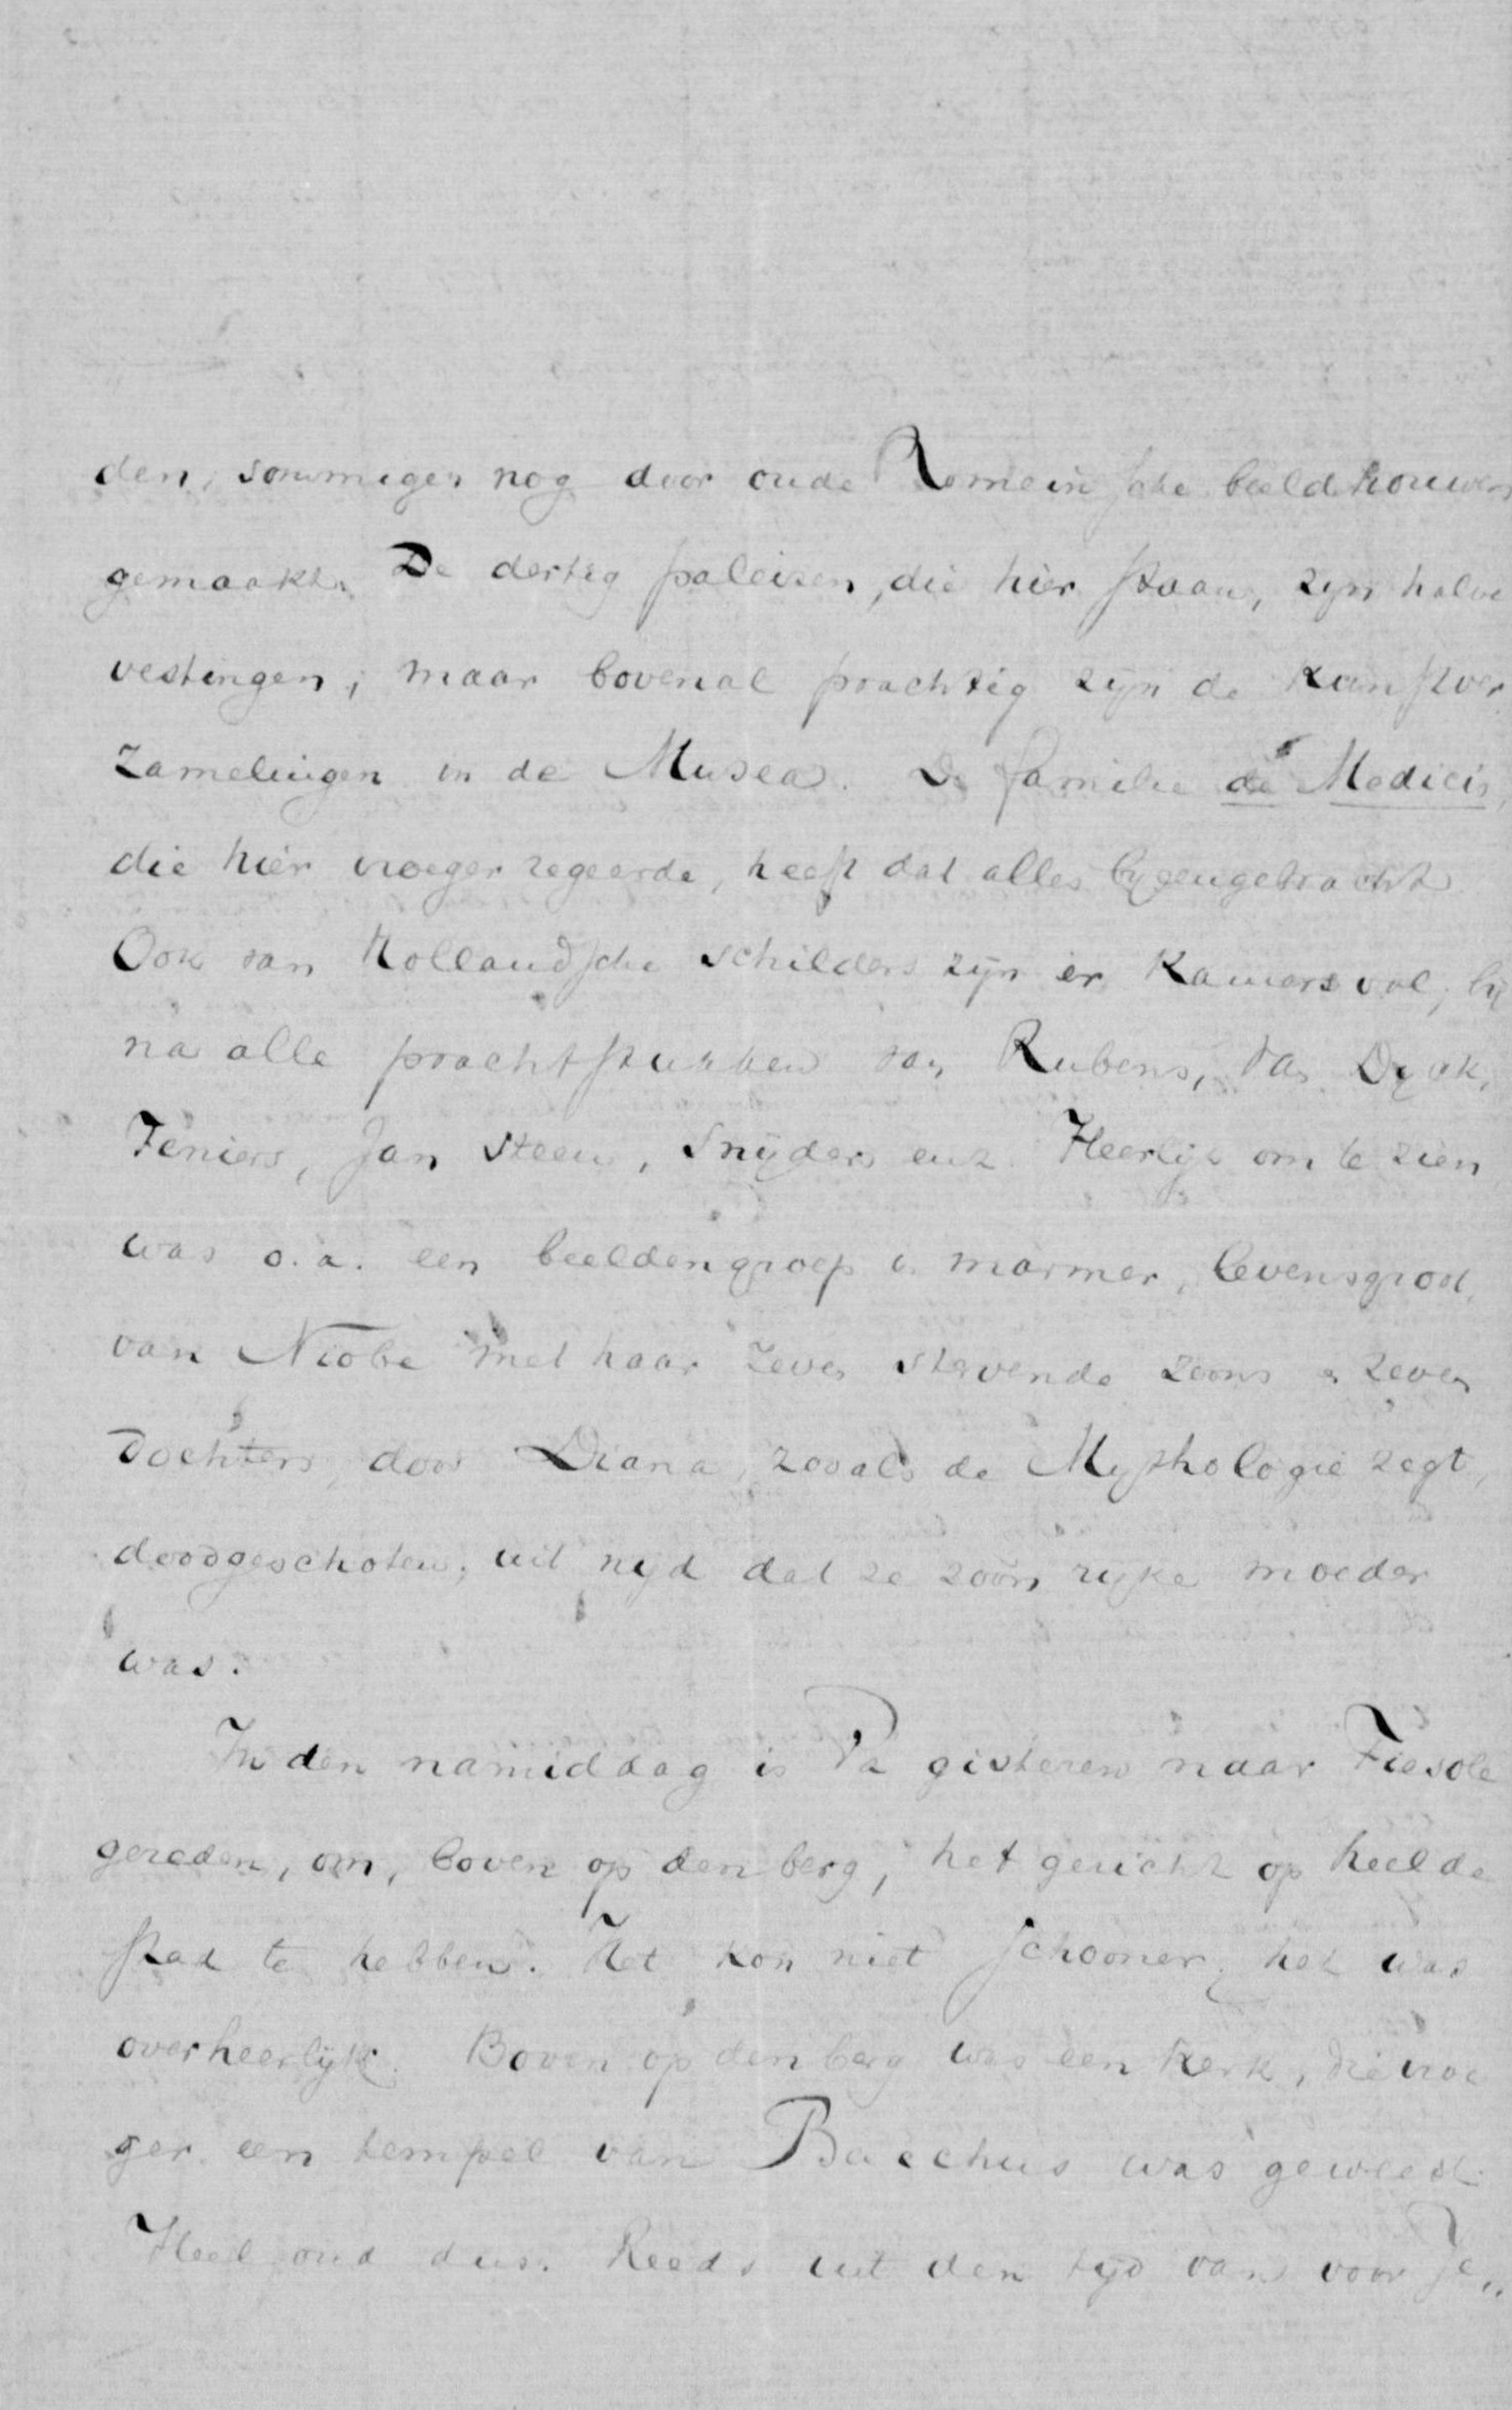 den, sommigen nog door oude Romeinsche beeldhouwers
gemaakt. De dertig paleizen, die hier staan, zijn halve
vestingen; maar bovenal prachtig zijn de Kunstver
zamelingen in de Musea. De familie de Medicis,
die hier vroeger regeerde, heeft dat alles bijeengebracht.
Ook van Hollandsche schilders zijn er Kamers vol; bij
na alle prachtstukken van Rubens, van Dyck,
Teniers, Jan Steen, Snijders enz. Heerlijk om te zien
was o.a. een beeldengroep in marmer, levensgroot,
van Niobe met haar zeven stervende zoons en zeven
dochters, door Diana, zooals de Mythologie zegt,
doodgeschoten; uit nijd dat ze zoo'n rijke moeder
was.
In den namiddag is Pa gisteren naar Fiesole
gereden, om, boven op den berg, het gezicht op heel de
stad te hebben. Het kon niet schooner; het was
overheerlijk. Boven op den berg was een Kerk, die vroe
ger een tempel van Bacchus was geweest.
Heel oud dus. Reeds uit den tijd van voor Je„